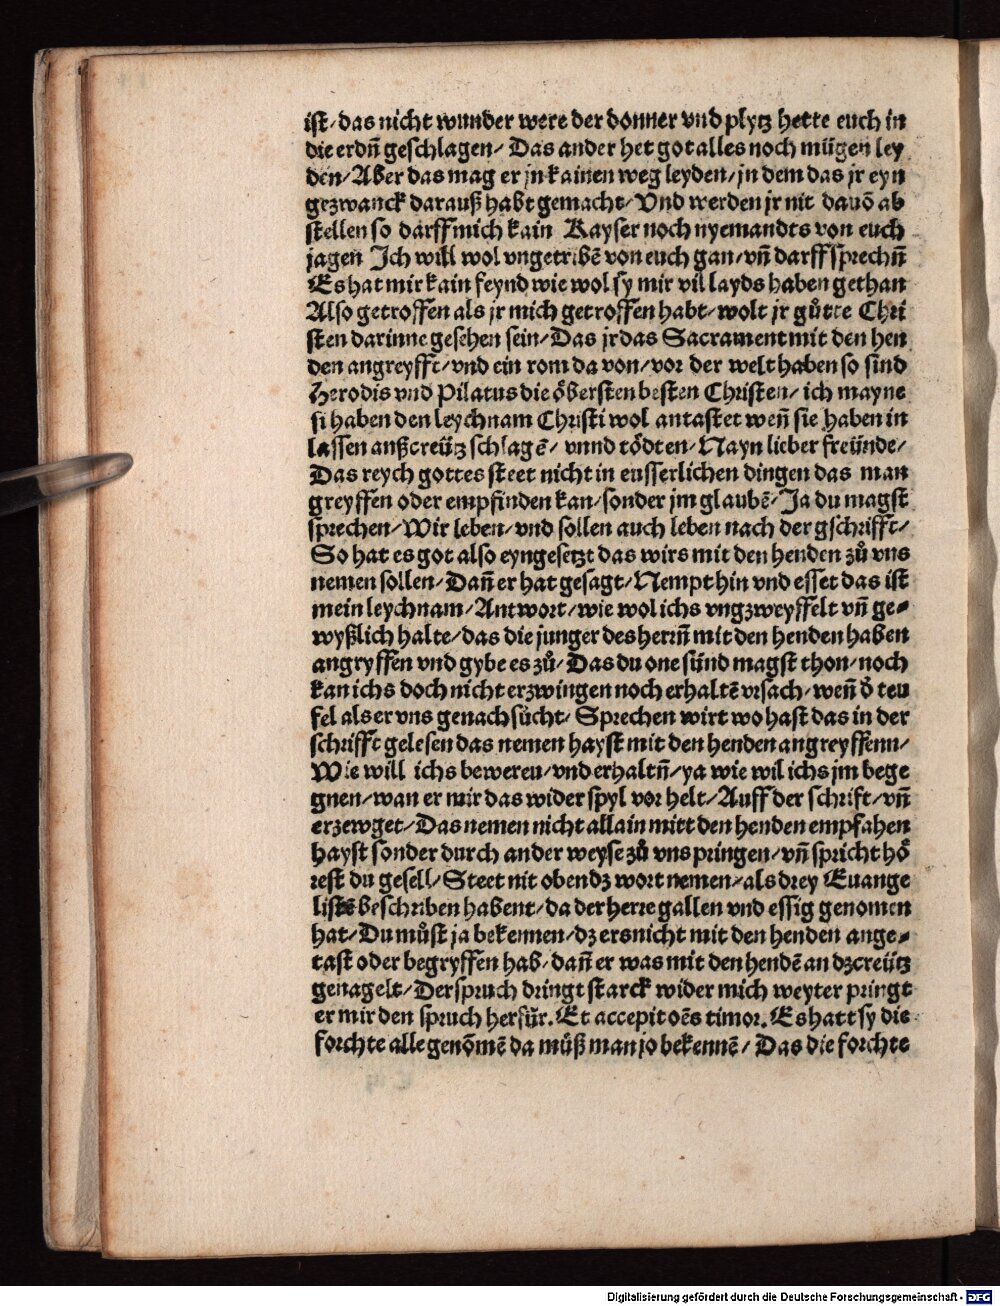 ist/ das nicht wunder were der donner vnd plytz hette euch in
die erdñ geschlagen/ Das ander het got alles noch mügen ley
den/ Aber das mag er jn kainen weg leyden/ jn dem das jr eyn
gezwanck darauß habt gemacht/ Vnd werden jr nit dauõ ab
stellen so darff mich kain Kayser noch nyemandts von euch
jagen Ich will wol vngetribẽ von euch gan/ vñ darff sprechñ
Es hat mir kain feynd wie wol sy mir vil layds haben gethan
Also getroffen als jr mich getroffen habt/ wolt jr gůtte Chri
sten darinne gesehen sein/ Das jr das Sacrament mit den hen
den angreyfft/ vnd ein rom da von/ vor der welt haben so sind
Herodis vnd Pilatus die öbersten besten Christen/ ich mayne
si haben den leychnam Christi wol antastet weñ sie haben in
lassen anßcreütz schlagẽ/ vnnd tödten/ Nayn lieber freünde/
Das reych gottes steet nicht in eusserlichen dingen das man
greyffen oder empfinden kan/ sonder jm glaubẽ/ Ja du magst
sprechen/ Wir leben/ vnd sollen auch leben nach der gschrifft/
So hat es got also eyngesetzt das wirs mit den henden zů vns
nemen sollen/ Dañ er hat gesagt/ Nempt hin vnd esset das ist
mein leychnam/ Antwort/ wie wol ichs vngzweyffelt vñ ge⸗
wyßlich halte/ das die junger des herrñ mit den henden haben
angryffen vnd gybe es zů/ Das du one sünd magst thon/ noch
kan ichs doch nicht erzwingen noch erhaltẽ vrsach/ weñ d̕ teu
fel als er vns genach sůcht/ Sprechen wirt wo hast das in der
schrifft gelesen das nemen hayst mit den henden angreyffenn/
Wie will ichs beweren/ vnd erhaltñ/ ya wie wil ichs jm bege
gnen/ wan er mir das widerspyl vor helt/ Auff der schrift/ vñ
erzewget/ Das nemen nicht allain mitt den henden empfahen
hayst sonder durch ander weyse zů vns pringen/ vñ spricht hö
rest du gesell/ Steet nit oben dz wort nemen/ als drey Euange
listẽ beschriben habent/ da der herre gallen vnd essig genomen
hat/ Du můst ja bekennen/ dz ers nicht mit den henden ange⸗
tast oder begryffen hab/ dañ er was mit den hendẽ an dz creütz
genagelt/ Der spruch dringt starck wider mich weyter pringt
er mir den spruch herfür. Et accepit oẽs timor. Es hatt sy die
forchte alle genõmẽ da můß man jo bekennẽ/ Das die forchte
Digitalisierung gefördert durch die Deutsche Forschungsgemeinschaft - DFG